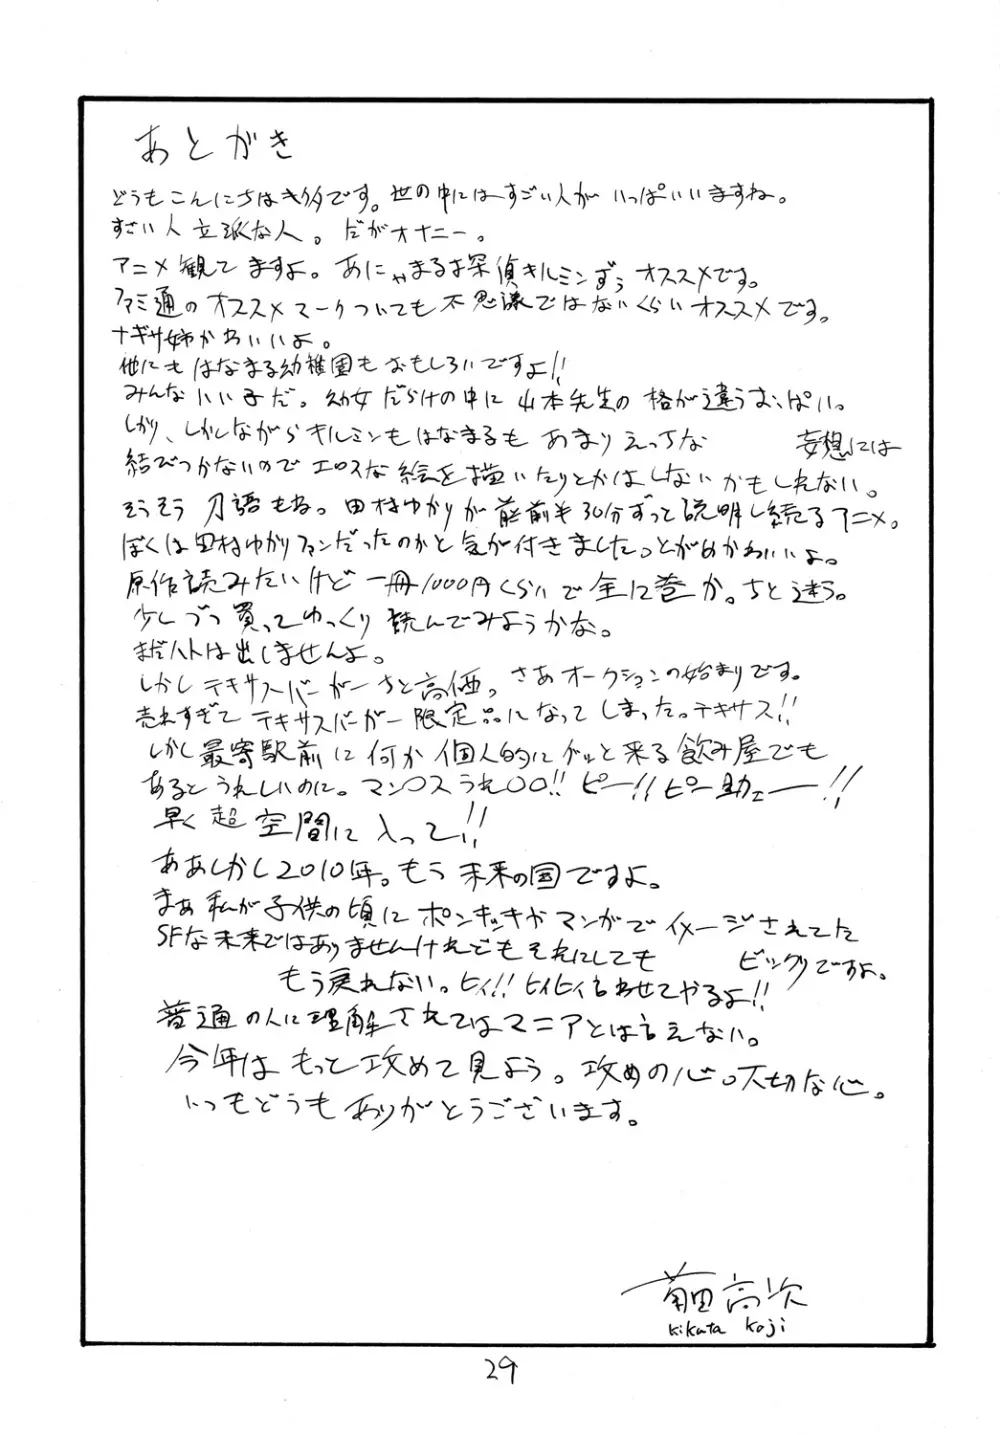 あとがき
どうもこんにちはキク多です。世の中にはすごい人が いっぱいいますね。
すごい人 立派な人。だがオナニー。
アニメ観てますよ。あにゃまる探偵キルミンずぅ オススメです。
ファミ通のオススメマークついても不思議ではないくらいオススメです。
ナギサ姉かわいいよ。
他にもはなまる幼稚園もおもしろいですよ!!
みんないい子だ。幼女だらけの中に山本先生の格が違うおっぱい。
しかし、しかしながらキルミンもはなまるもあまりえっちな 妄想には
結びつかないのでエロスな絵を描いたりとかはしないかもしれない。
そうそう刀語もね。田村ゆかりが前半30分ずっと説明し続けるアニメ。
ぼくは田村ゆかりファンだったのかと気が付きました。とがめかわいいよ。
原作読みたいけど一冊1000円くらいで全12巻か。ちと迷う。
少しづつ買ってゆっくり読んでみようかな。
まだハトは出しませんよ。
しかしテキサスバーガーちと高価。さあオークションの始まりです。
売れすぎてテキサスバーガー限定品になってしまった。テキサス!!
しかし最寄駅前に何か個人的にグッと来る飲み屋でも
あるとうれしいのに。マン〇スうれ〇〇!!ピー!!ピー助ェー!!
早く超空間に入って!!
ああしかし2010年。もう未来の国ですよ。
まあ私が子供の頃にポンキッキやマンガでイメージされてた
SFな未来ではありませんけれどもそれにしても ビックリですよ。
もう戻れない。ヒィ!!ヒィヒィ言わせてやるよ!!
普通の人に理解されてはマニアとは言えない。
今年はもっと攻めて見よう。攻めの心。大切な心。
いつもどうもありがとうございます。
菊田高次
Kikuta Koji
29